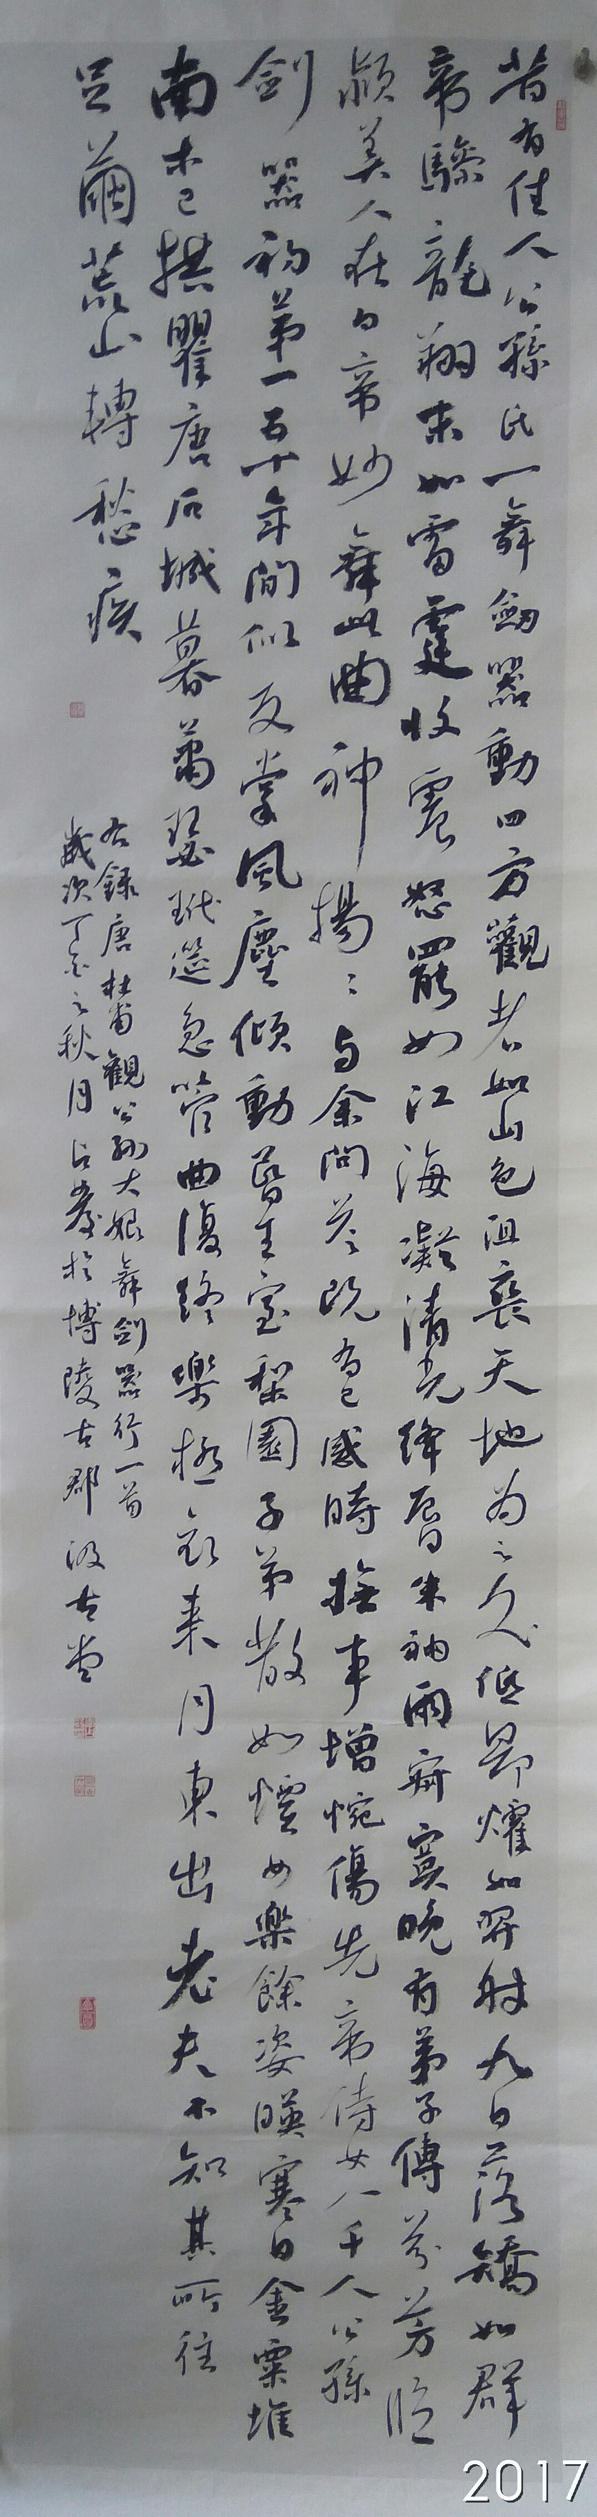 昔有佳人公孫氏一舞劍器動四方觀者如山色沮喪天地為之久低昂㸌如羿射九日落矯如群
帝驂龍翔來如雷霆收震怒罷如江海凝清光絳唇朱袖兩寂寞晚有弟子傳芬芳臨
潁美人在白帝妙舞此曲神揚〻與余問答既有已感時撫事增惋傷先帝侍女八千人公孫
劍器初第一五十年間似反掌風塵傾動昏王室梨園子弟散如煙女樂餘姿映寒日金粟堆
南木已拱瞿唐石城暮蕭瑟玳筵急管曲復終樂極哀來月東出老夫不知其所往
足繭荒山轉愁疾
右錄唐杜甫觀公孫大娘舞劍器行一首
歲次丁酉之秋月占彥於博陵古郡汲古堂
2017